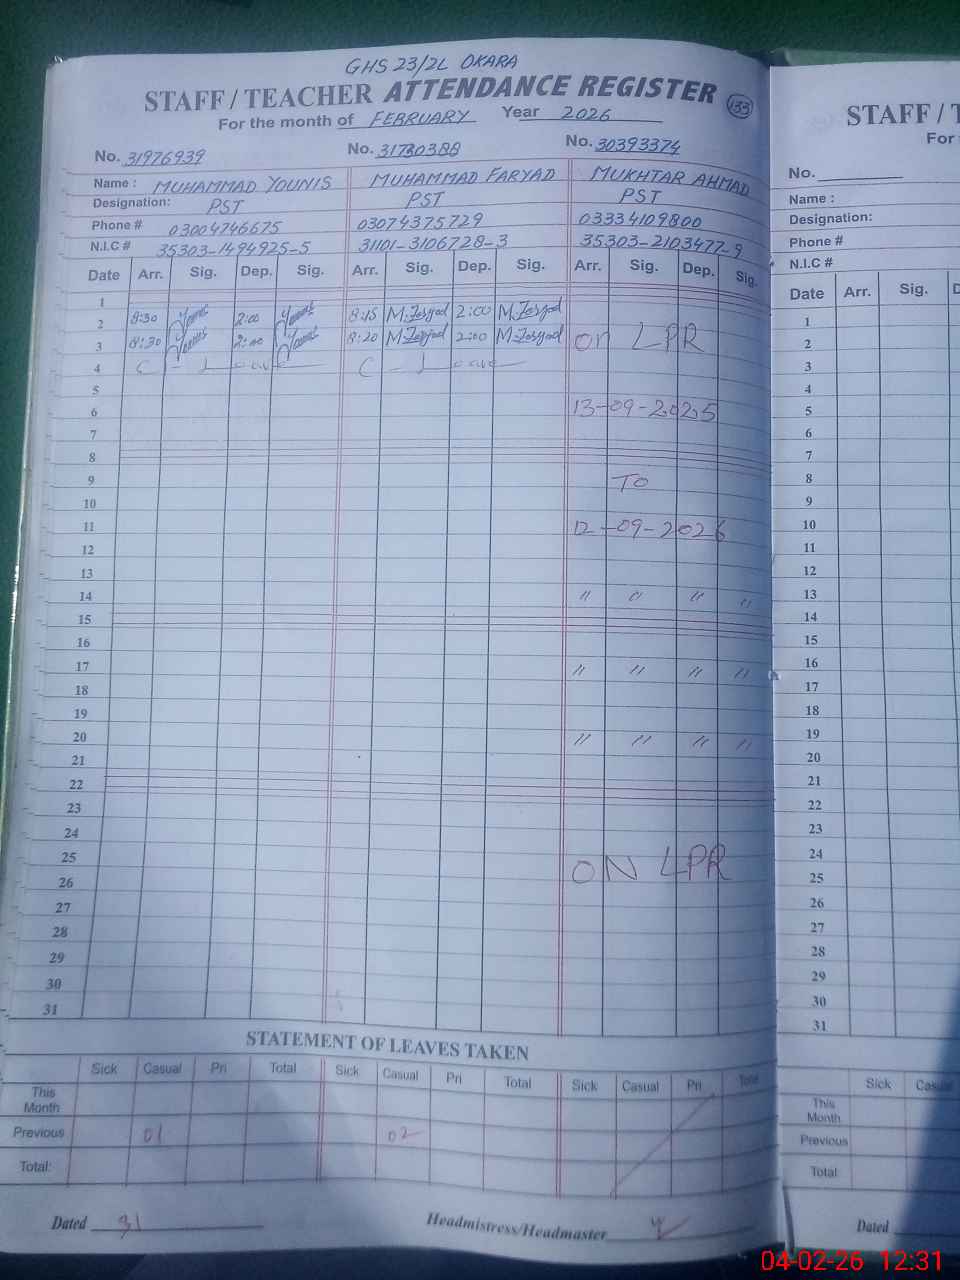 GHS 23/2L OKARA
STAFF / TEACHER ATTENDANCE REGISTER 133
For the month of FEBRUARY Year 2026
No. 31976939 No. 31780388 No. 30393374
Name : MUHAMMAD YOUNIS MUHAMMAD FARYAD MUKHTAR AHMAD
Designation: PST PST PST
Phone # 03004746675 03074375729 03334109800
N.I.C # 35303-1494925-5 31101-3106728-3 35303-2103477-9
Date Arr. Sig. Dep. Sig. Arr. Sig. Dep. Sig. Arr. Sig. Dep. Sig.
1
2 8:30 Younis 2:00 Younis 8:15 M.Faryad 2:00 M.Faryad
3 8:30 Younis 2:00 Younis 8:20 M.Faryad 2:00 M.Faryad on LPR
4 C - Leave C - Leave
5
6 13-09-2025
7
8
9 TO
10
11 12-09-2026
12
13
14 " " " "
15
16
17 " " " "
18
19
20 " " " "
21
22
23
24
25 ON LPR
26
27
28
29
30
31
STATEMENT OF LEAVES TAKEN
Sick Casual Pri Total Sick Casual Pri Total Sick Casual Pri Total
This Month
Previous 01 02
Total:
Dated 31 Headmistress/Headmaster
STAFF / T
For
No.
Name :
Designation:
Phone #
N.I.C #
Date Arr. Sig. D
1
2
3
4
5
6
7
8
9
10
11
12
13
14
15
16
17
18
19
20
21
22
23
24
25
26
27
28
29
30
31
Sick Casual
This Month
Previous
Total
Dated
04-02-26 12:31